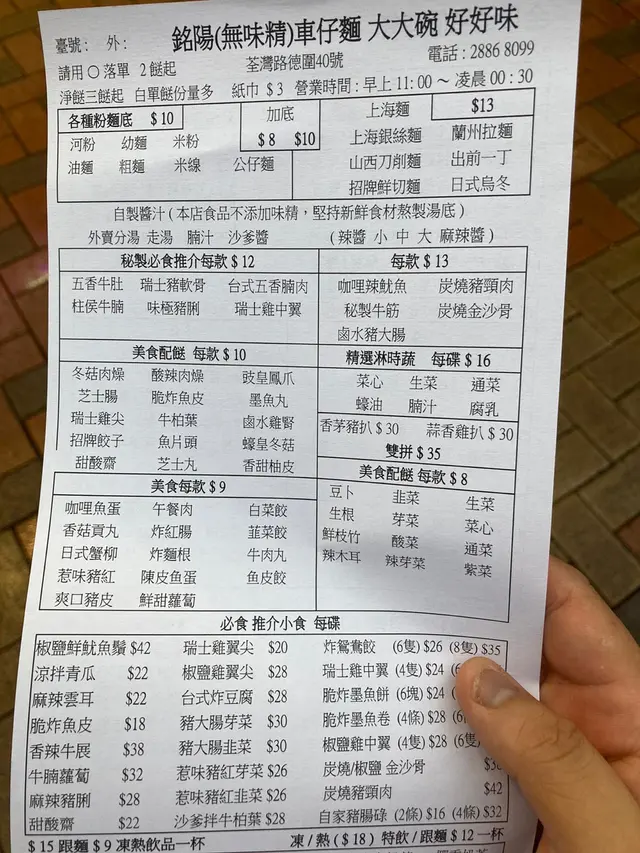 銘陽(無味精)車仔麵 大大碗 好好味
臺號： 外：
荃灣路德圍40號 電話：2886 8099
請用〇落單 2餸起
淨餸三餸起 白單餸份量多 紙巾 $3 營業時間：早上11:00～凌晨00:30
各種粉麵底 $10
河粉 幼麵 米粉
油麵 粗麵 米線 公仔麵
加底
$8 $10
上海麵 $13
上海銀絲麵 蘭州拉麵
山西刀削麵 出前一丁
招牌鮮切麵 日式烏冬
自製醬汁(本店食品不添加味精，堅持新鮮食材熬製湯底)
外賣分湯 走湯 腩汁 沙爹醬 (辣醬 小 中 大 麻辣醬)
秘製必食推介每款 $12
五香牛肚 瑞士豬軟骨 台式五香腩肉
柱侯牛腩 味極豬脷 瑞士雞中翼
每款 $13
咖哩辣魷魚 炭燒豬頸肉
秘製牛筋 炭燒金沙骨
鹵水豬大腸
美食配餸 每款 $10
冬菇肉燥 酸辣肉燥 豉皇鳳爪
芝士腸 脆炸魚皮 墨魚丸
瑞士雞尖 牛柏葉 鹵水雞腎
招牌餃子 魚片頭 蠔皇冬菇
甜酸齋 芝士丸 香甜柚皮
精選淋時蔬 每碟 $16
菜心 生菜 通菜
蠔油 腩汁 腐乳
香茅豬扒 $30 蒜香雞扒 $30
雙拼 $35
美食每款 $9
咖哩魚蛋 午餐肉 白菜餃
香菇貢丸 炸紅腸 韮菜餃
日式蟹柳 炸麵根 牛肉丸
惹味豬紅 陳皮魚蛋 魚皮餃
爽口豬皮 鮮甜蘿蔔
美食配餸 每款 $8
豆卜 韮菜 生菜
生根 芽菜 菜心
鮮枝竹 酸菜 通菜
辣木耳 辣芽菜 紫菜
必食 推介小食 每碟
椒鹽鮮魷魚鬚 $42 瑞士雞翼尖 $20 炸鴛鴦餃 (6隻) $26 (8隻) $35
涼拌青瓜 $22 椒鹽雞翼尖 $28 瑞士雞中翼 (4隻) $24
麻辣雲耳 $22 台式炸豆腐 $28 脆炸墨魚餅 (6塊) $24
脆炸魚皮 $18 豬大腸芽菜 $30 脆炸墨魚卷 (4條) $28
香辣牛展 $38 豬大腸韮菜 $30 椒鹽雞中翼 (4隻) $28 (6隻)
牛腩蘿蔔 $32 惹味豬紅芽菜 $26 炭燒/椒鹽 金沙骨
麻辣豬脷 $28 惹味豬紅韮菜 $26 炭燒豬頸肉 $42
甜酸齋 $22 沙爹拌牛柏葉 $28 自家豬腸碌 (2條) $16 (4條) $32
$15 跟麵 $9 凍熱飲品一杯 凍/熱($18) 特飲/跟麵 $12 一杯